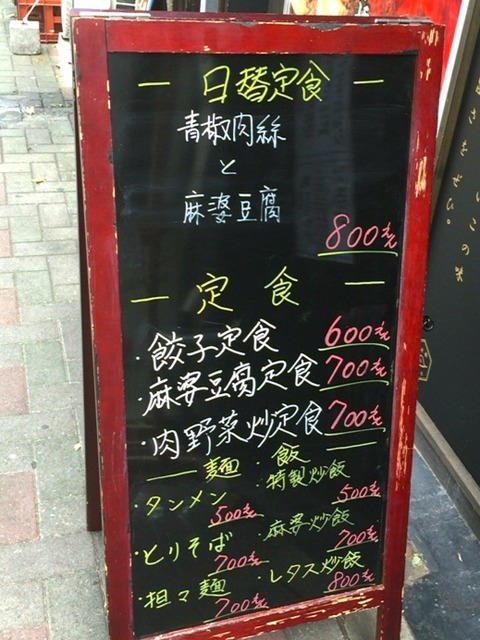 ー 日替定食 ー
青椒肉絲
と
麻婆豆腐
800えん
ー 定食 ー
・餃子定食 600えん
・麻婆豆腐定食 700えん
・肉野菜炒定食 700えん
ー 麺・飯 ー
・タンメン 500えん
・とりそば 700えん
・担々麺 700えん
特製炒飯 500えん
・麻婆炒飯 700えん
・レタス炒飯 800えん